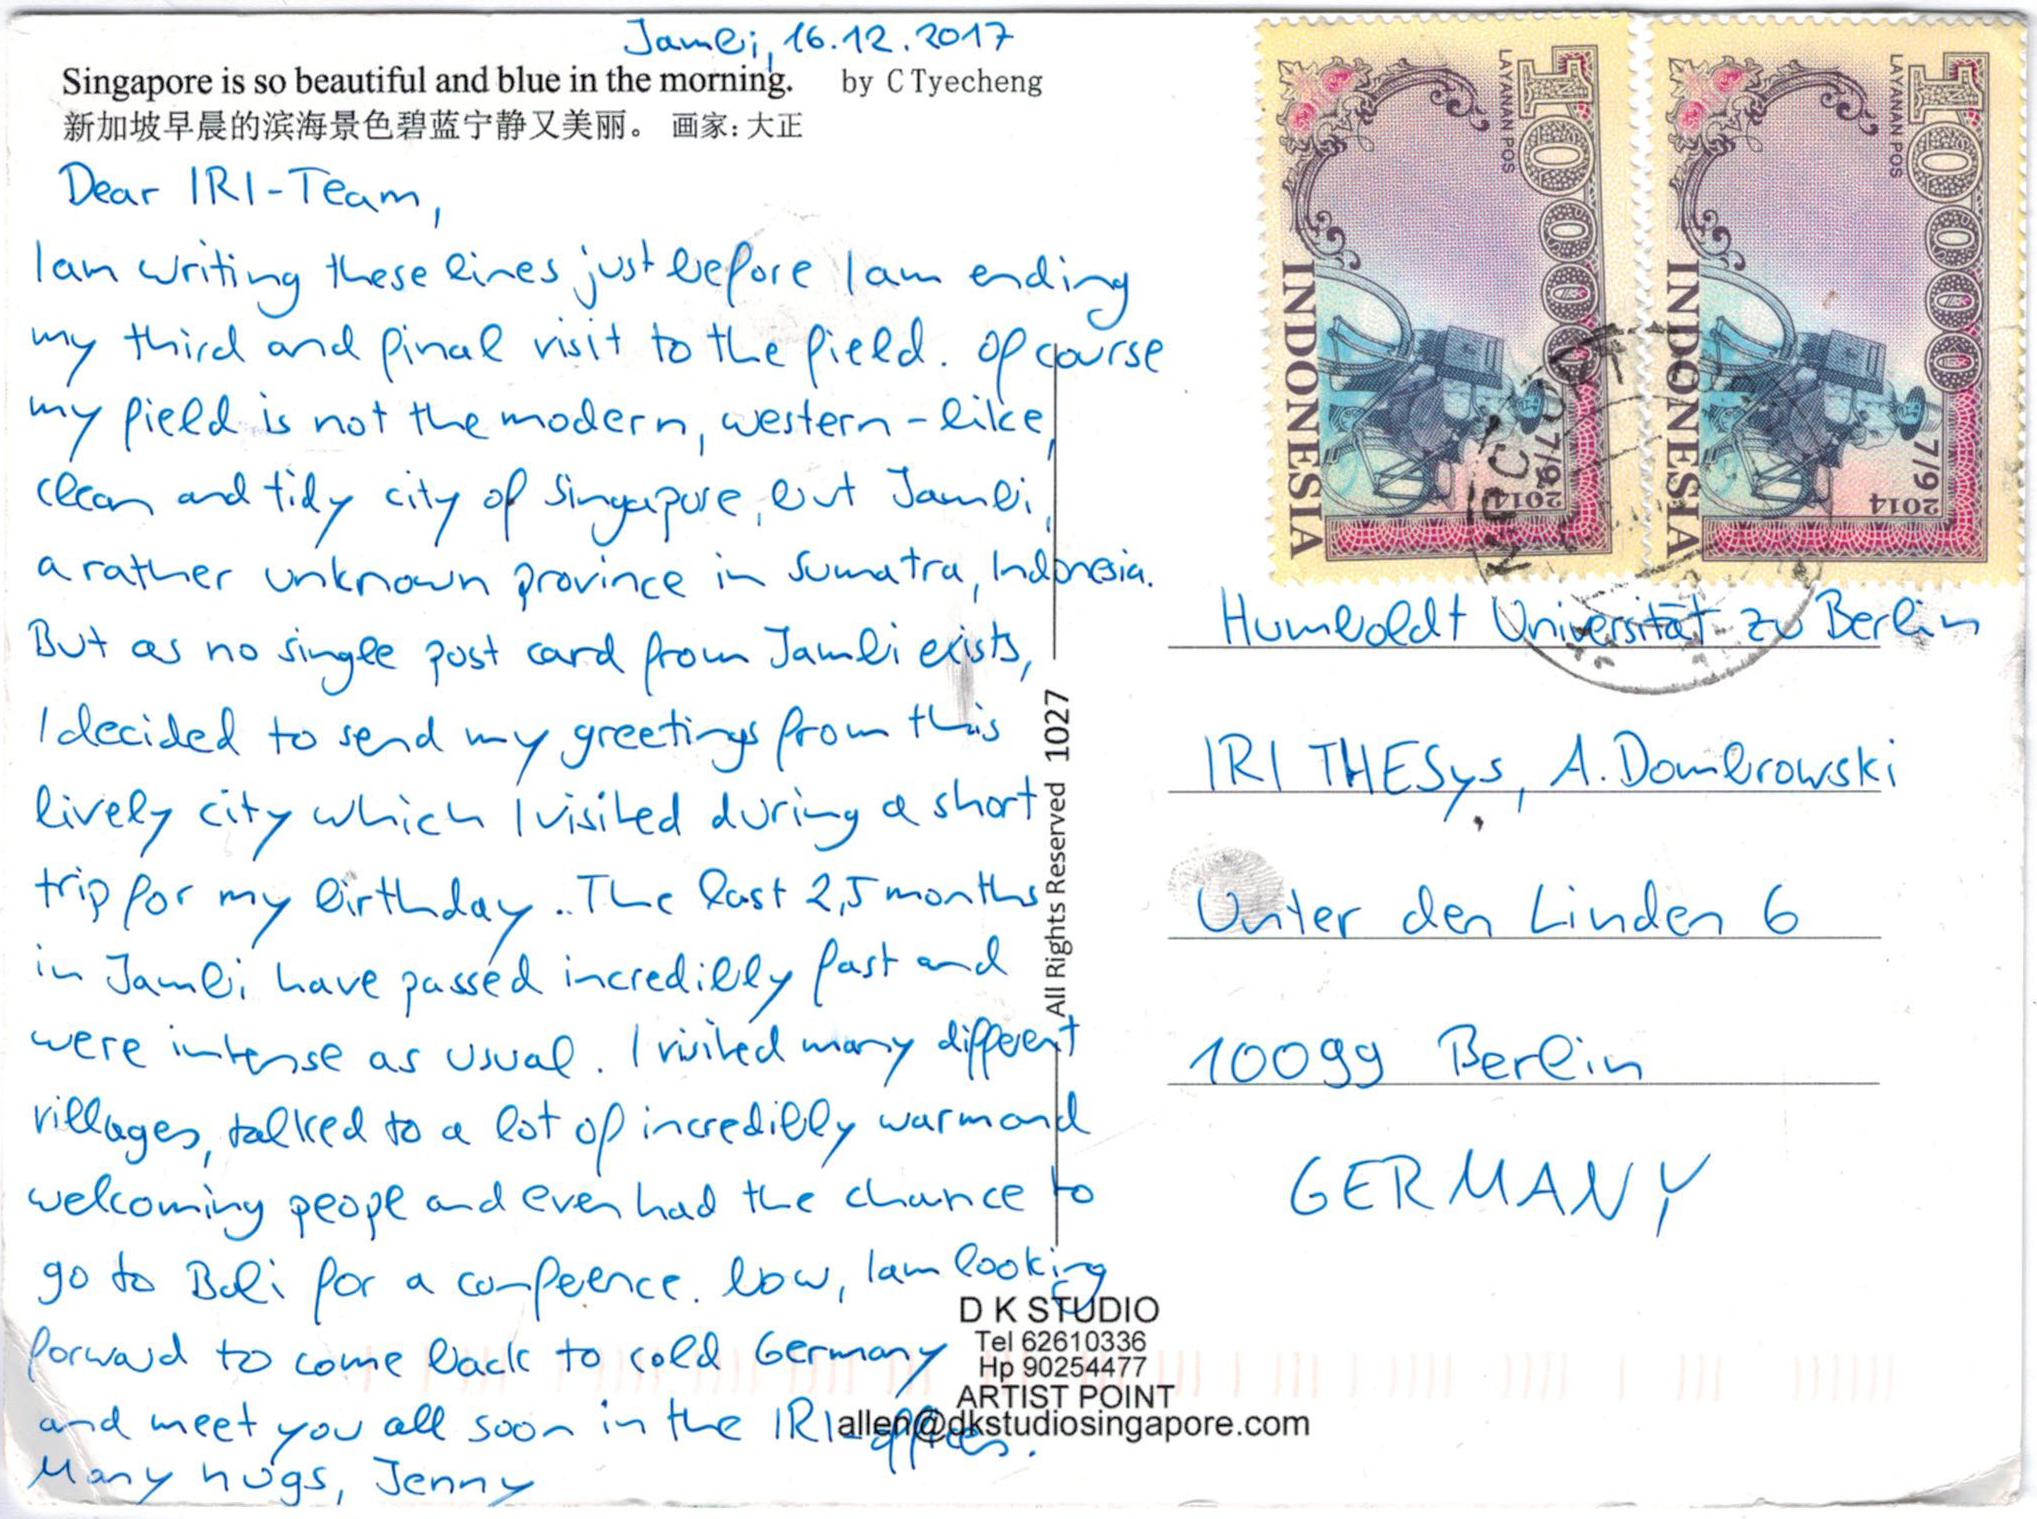 Jambi, 16.12.2017
Singapore is so beautiful and blue in the morning. by C Tyecheng
新加坡早晨的滨海景色碧蓝宁静又美丽。 画家：大正
Dear IRI-Team,
I am writing these lines just before I am ending
my third and final visit to the field. Of course
my field is not the modern, western-like,
clean and tidy city of Singapure, but Jambi,
a rather unknown province in Sumatra, Indonesia.
But as no single post card from Jambi exists,
I decided to send my greetings from this
lively city which I visited during a short
trip for my birthday.. The last 2,5 months
in Jambi have passed incredibly fast and
were intense as usual. I visited many different
villages, talked to a lot of incredibly warm and
welcoming peope and even had the chance to
go to Bali for a confeence. Now, I am looking
forward to come back to cold Germany
and meet you all soon in the IRI-offices.
Many hugs, Jenny
All Rights Reserved 1027
D K STUDIO
Tel 62610336
Hp 90254477
ARTIST POINT
allen@dkstudiosingapore.com
10000
LAYANAN POS
INDONESIA
7/9
2014
10000
LAYANAN POS
INDONESIA
7/9
2014
Humboldt Universität zu Berlin
IRI THESys, A. Dombrowski
Unter den Linden 6
10099 Berlin
GERMANY